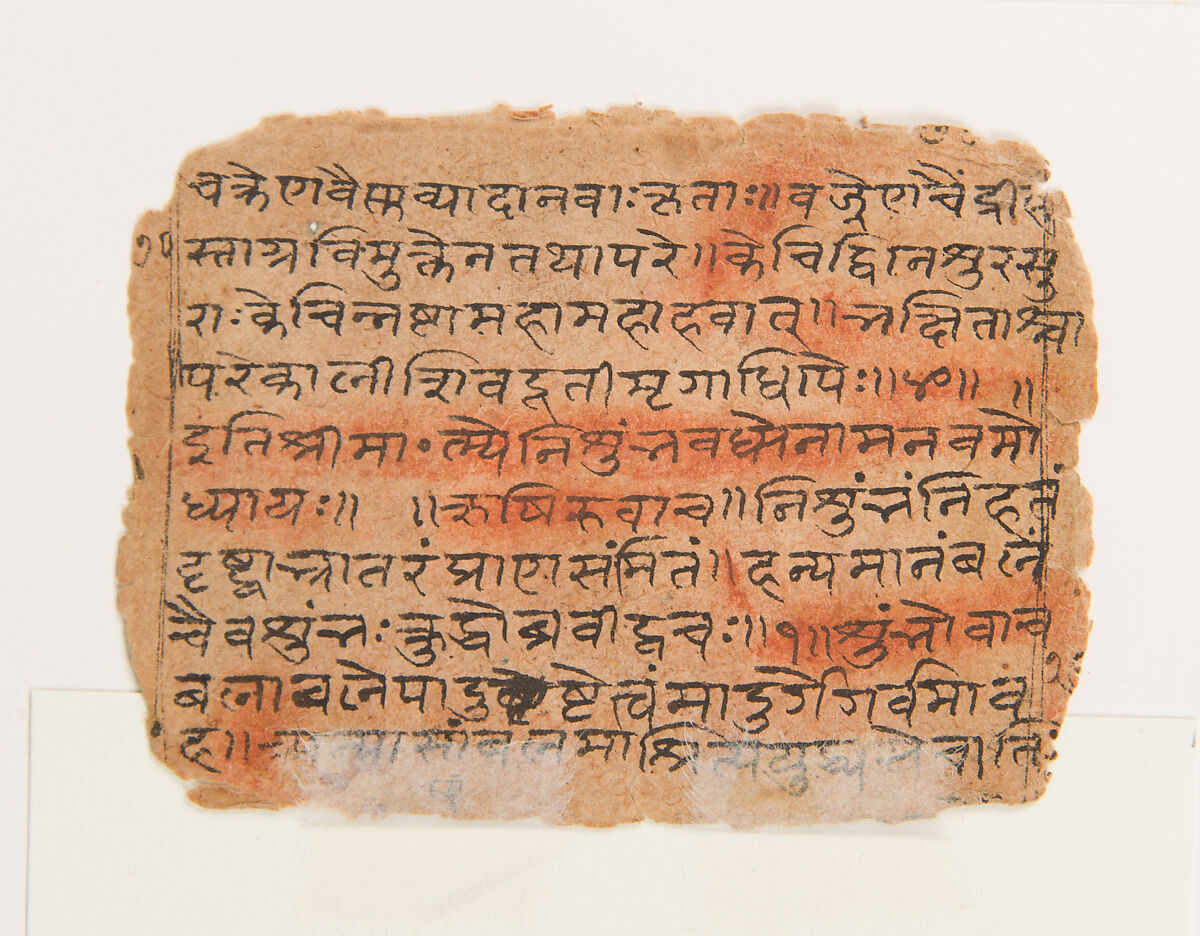 चक्रेण वैष्णव्या दानवाः कृताः॥ वज्रेण चैंद्रीह
स्ताग्रविमुक्तेन तथापरे॥ केचिद्विनश्रुरसु
राः केचिन्नष्टा महामहाहवात्॥ भक्षिताश्चा
परे काली शिवदूती मृगाधिपैः॥ ४०॥ ॥
इति श्रीमा॰त्म्ये निशुंभवध्येनाम नवमो
ध्यायः॥ ॥ ऋषिरुवाच॥ निशुंभं निहतं
दृष्ट्वा भ्रातरं प्राणसंमितं॥ हन्यमानं बलं
चैव शुंभः क्रुद्धोब्रवीद्वचः॥ १॥ शुंभोवाच
बलावलेपादुष्टे त्वं मा दुर्गे गर्वमाव
ह॥ बलमाश्रित्य